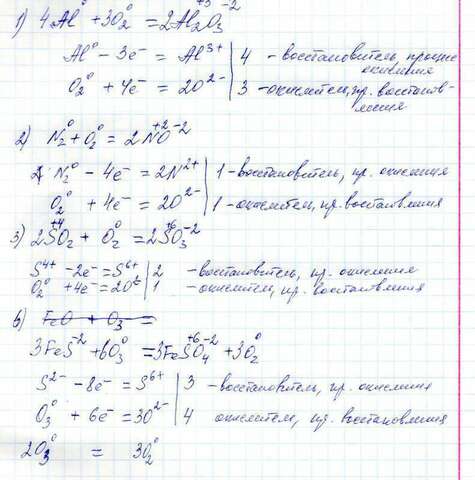 1) 4Al⁰ + 3O₂⁰ = 2Al₂⁺³O₃⁻²
Al⁰ - 3e⁻ = Al³⁺ | 4 - восстановитель, процесс
окисления
O₂⁰ + 4e⁻ = 2O²⁻ | 3 - окислитель, пр. восстанов-
ления
2) N₂⁰ + O₂⁰ = 2N⁺²O⁻²
N₂⁰ - 4e⁻ = 2N²⁺ | 1 - восстановитель, пр. окисления
O₂⁰ + 4e⁻ = 2O²⁻ | 1 - окислитель, пр. восстановления
3) 2S⁺⁴O₂ + O₂⁰ = 2S⁺⁶O₃⁻²
S⁴⁺ - 2e⁻ = S⁶⁺ | 2 - восстановитель, пр. окисления
O₂⁰ + 4e⁻ = 2O²⁻ | 1 - окислитель, пр. восстановления
6) FeO + O₃ =
3FeS⁻² + 6O₃⁰ = 3FeS⁺⁶O₄⁻² + 3O₂⁰
S²⁻ - 8e⁻ = S⁶⁺ | 3 - восстановитель, пр. окисления
O₃⁰ + 6e⁻ = 3O²⁻ | 4 окислитель, пр. восстановления
2O₃⁰ = 3O₂⁰